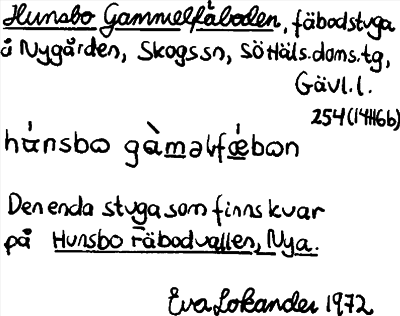 Hunsbo Gammelfäboden, fäbodstuga
å Nygården, Skogs sn, Sö Häls.doms.tg,
Gävl.l.
254 (14H6b)
húnsbo gàməlfǽbon
Den enda stuga som finns kvar
på Hunsbo Fäbodvallen, Nya.
Eva Lokander 1972